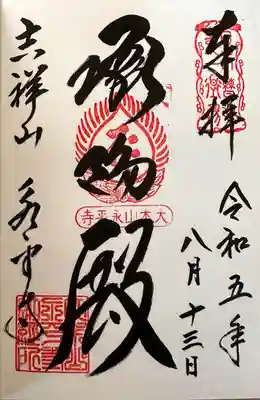 奉拝
令和五年
八月十三日
承陽殿
大本山永平寺
吉祥山
永平寺